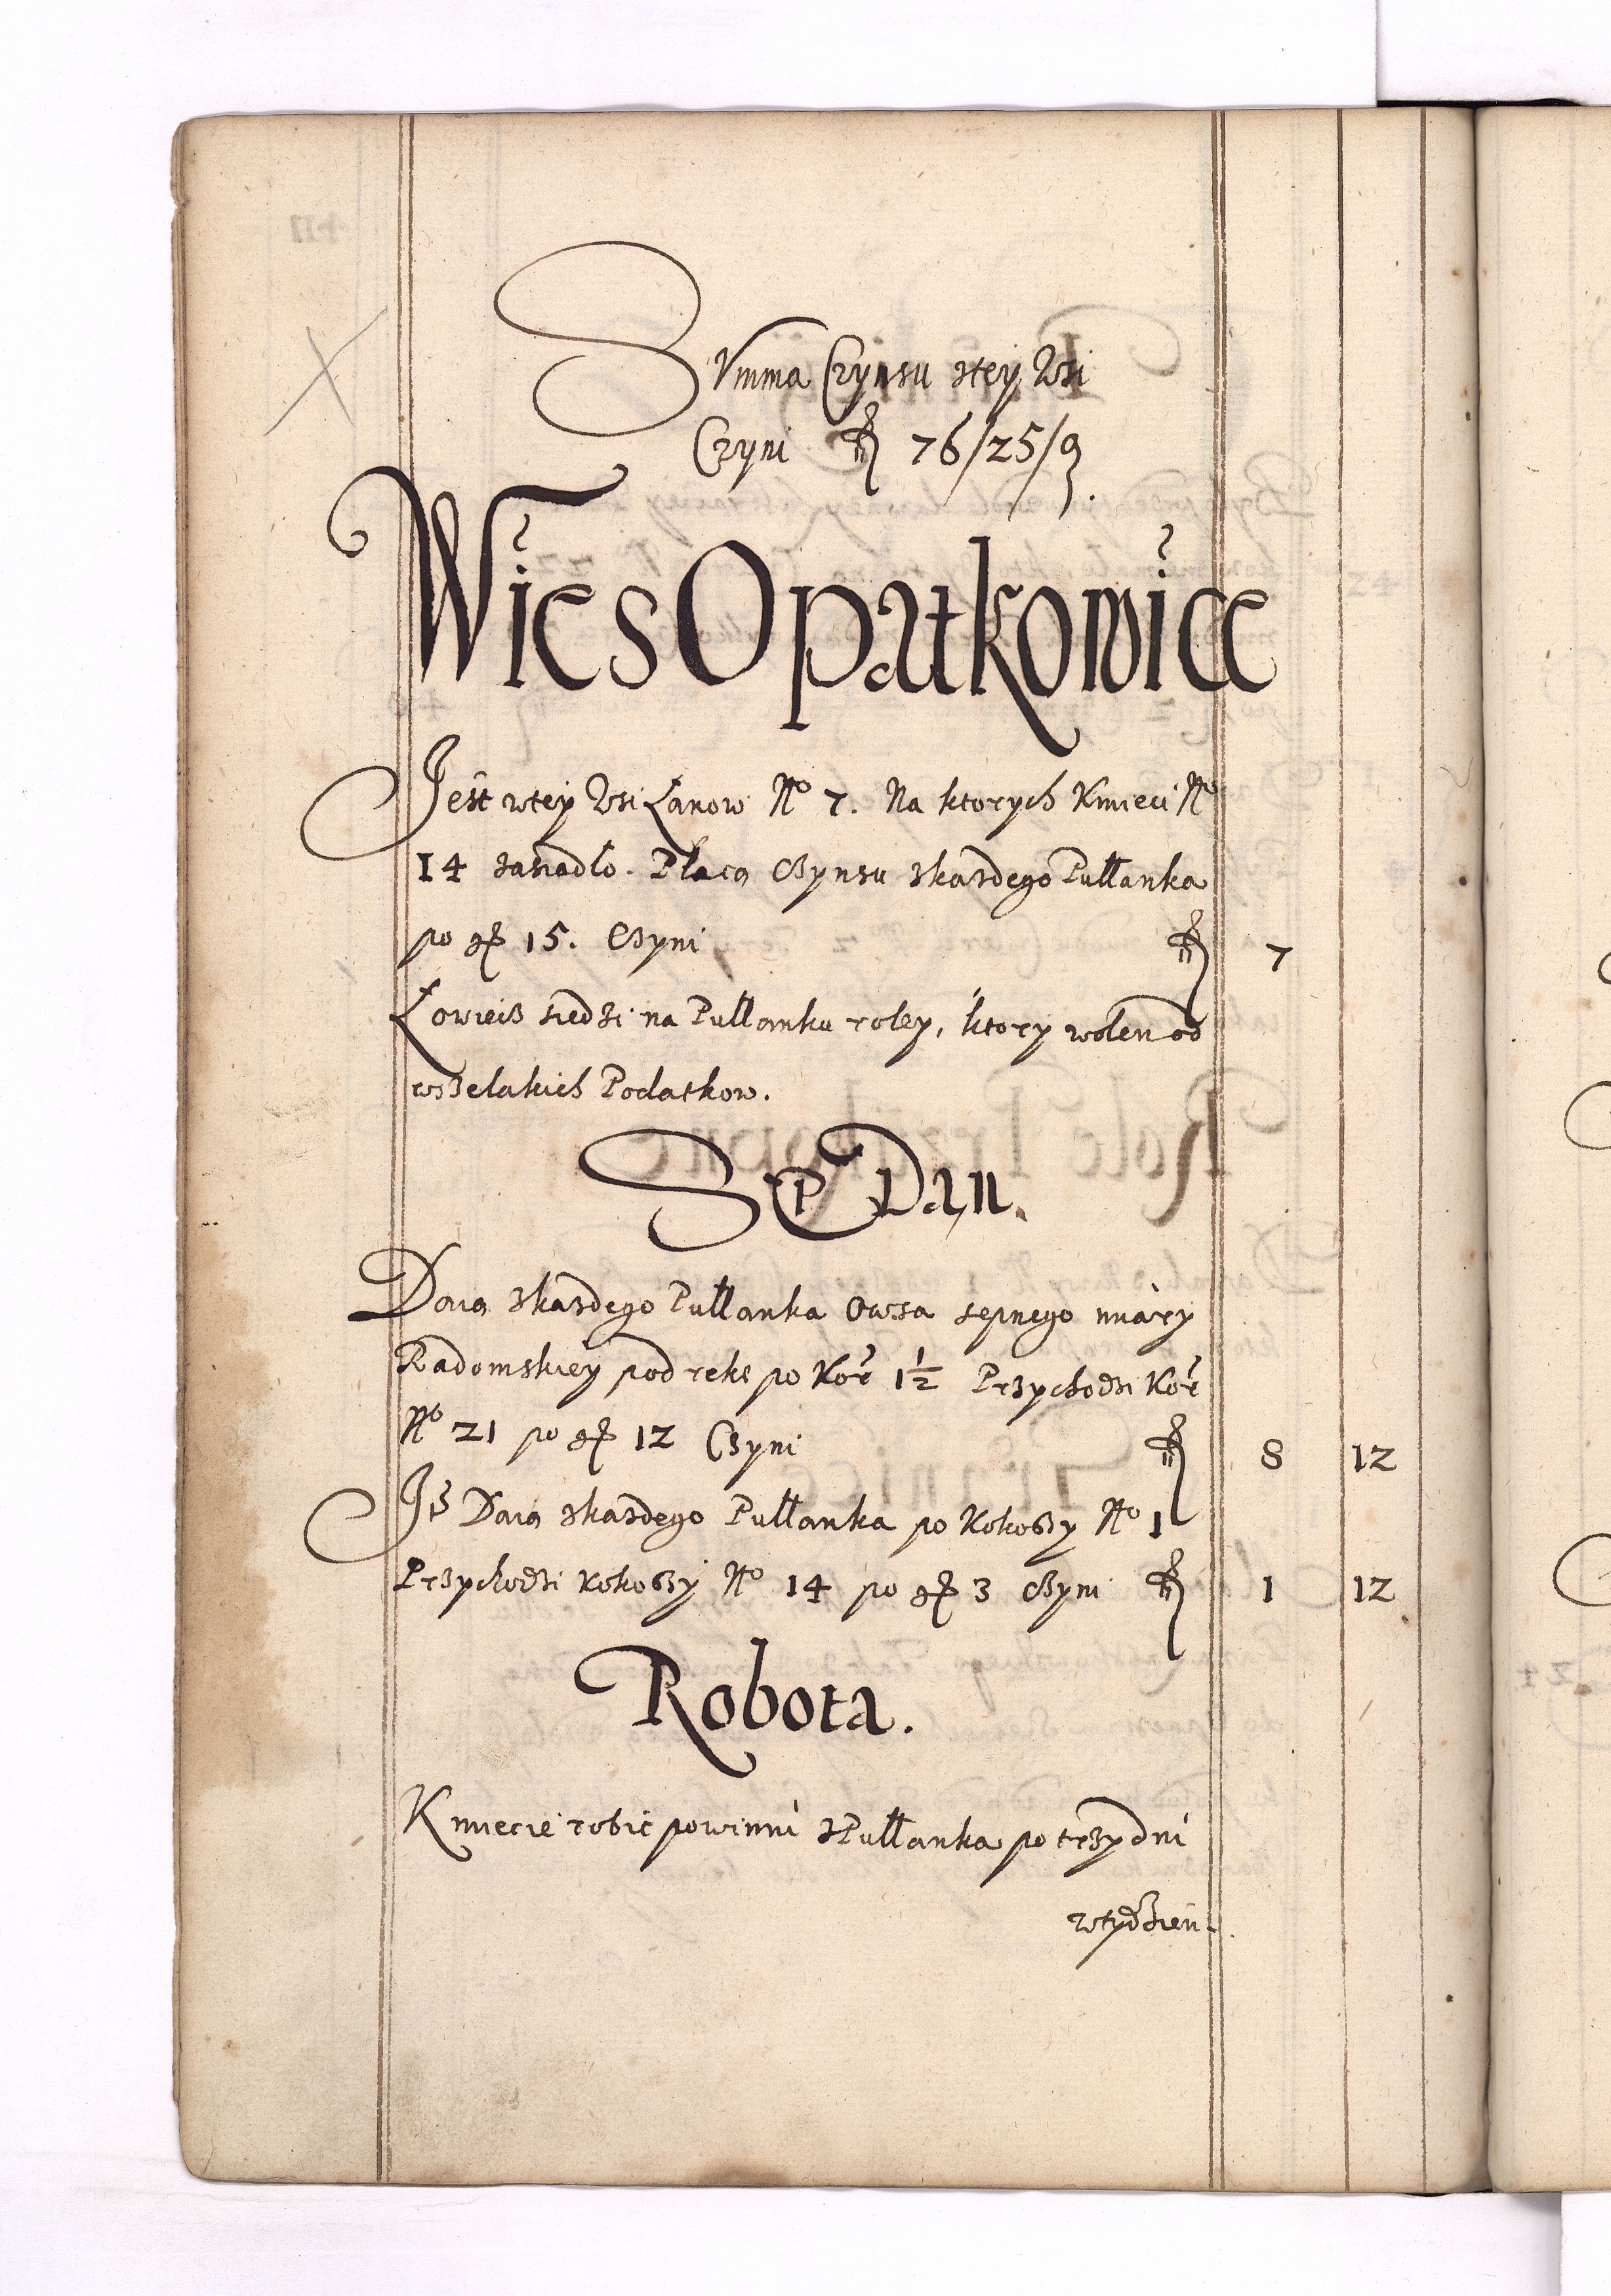 SVmma Czynsu ztey Wsi
Czyni fl 76/25/9.
Wies Opatkowice
Jest wtey Wsi Łanow No 7. Na ktorych Kmieci No
14 zasiadło. Płacą Czynsu zkazdego Pułłanka
po gr 15. Czyni fl 7
Łowiec siedzi na Pułłanku roley, ktory wolen od
wszelakich Podatkow.
SEP Dan.
Daią zkazdego Pułłanka Owsa sepnego miary
Radomskiey pod reke po Kor 1½ Przychodzi Kor
No 21 po gr 12 Czyni fl 8 12
It Daią zkazdego Pułłanka po Kokoszy No 1
Przychodzi Kokoszy No 14 po gr 3 Czyni fl 1 12
Robota.
Kmiecie robic powinni zPułłanka po trzy dni
wtydzien.